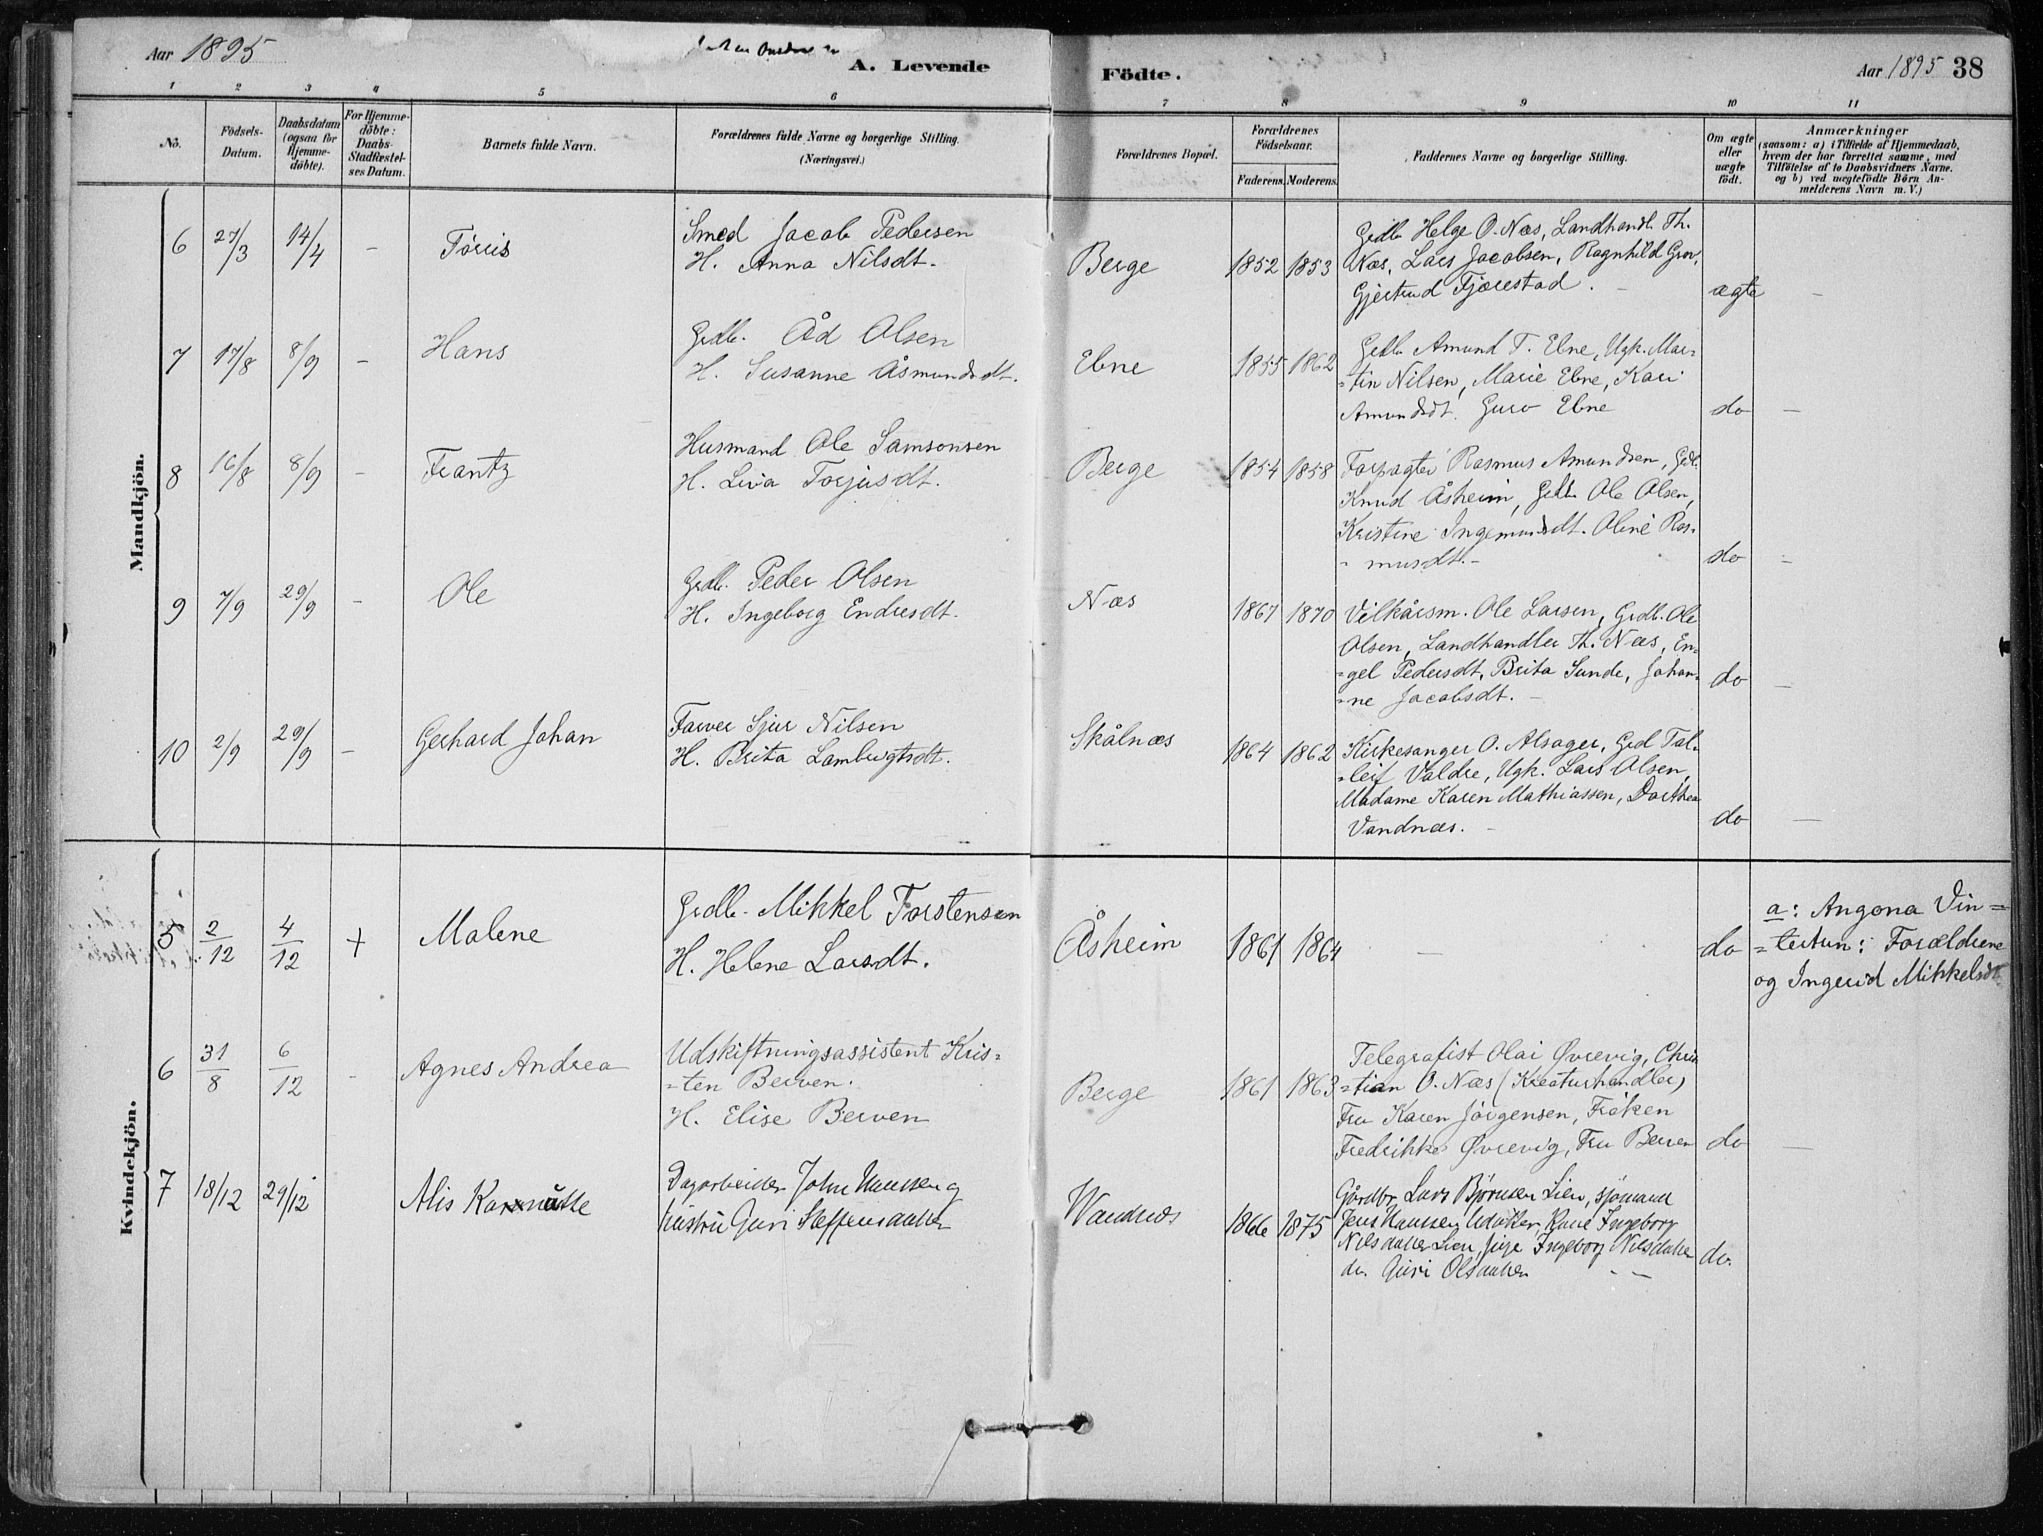 Aar 1895
A. Levende
Födte.
Aar 1895 38
1 2 3 4 5 6 7 8 9 10 11
No.
Födsels-Datum.
Daabsdatum (ogsaa for Hjemme-döbte).
For Hjemme-döbte: Daabs-Stadfæstel-ses Datum.
Barnets fulde Navn.
Forældrenes fulde Navne og borgerlige Stilling.
(Næringsvei.)
Forældrenes Bopæl.
Forældrenes Födselsaar.
Faderens. Moderens.
Faddernes Navne og borgerlige Stilling.
Om ægte eller uægte födt.
Anmærkninger
(saasom: a) i Tilfælde af Hjemmedaab,
hvem der har forrettet samme, med
Tilföielse af to Daabsvidners Navne.
og b) ved uægtefödte Börn An-
melderens Navn m. V.)
Mandkjön.
6 27/3 14/4 - Tørris
Smed Jacob Pedersen
H. Anna Nilsdt.
Berge 1852 1853
Grdb. Helge O. Næs, Landhandl. Th.
Næs, Lars Jacobsen, Ragnhild Grov,
Gjertrud Fjærestad. -
ægte -
7 17/8 8/9 - Hans
Grdb. Åd Olsen
H. Susanne Åsmundsdt.
Ebne 1855 1862
Grdb. Amund T. Ebne, Ugk. Mar-
-tin Nilsen, Marie Ebne, Kari
Amundsdt. Guro Ebne
do -
8 16/8 8/9 - Frantz
Husmand Ole Samsonsen
H. Liva Torjusdt.
Berge 1854 1858
Forpagter Rasmus Amundsen, Grdb.
Knud Åsheim, Grdb. Ole Olsen,
Kristine Ingemundsdt. Oline Ras-
- musdt. -
do -
9 7/9 29/9 - Ole
Grdb. Peder Olsen
H. Ingeborg Endresdt.
Næs 1867 1870
Vilkårsm. Ole Larsen, Grdb. Ole
Olsen, Landhandler Th. Næs, En-
-gel Pedersdt, Brita Sunde, Johan-
-ne Jacobsdt. -
do -
10 2/9 29/9 - Gerhard Johan
Farver Sjur Nilsen
H. Brita Lambregtsdt.
Skålnæs 1864 1862
Kirkesanger O. Alsager, Grd Tol-
-leif Valdre, Ugk. Lars Olsen,
Madame Karen Mathiassen, Dorthea
Vandnæs. -
do -
Kvindekjön.
5 2/12 4/12 + Malene
Grdb. Mikkel Torstensen
H. Helene Larsdt.
Åsheim 1861 1864
-
do
a: Angona Vin-
-tertun: Forældrene
og Ingerid Mikkelsdt.
6 31/8 6/12 - Agnes Andrea
Udskiftningsassistent Kris-
-ten Berven.
H. Elise Berven
Berge 1861 1863
Telegrafist Olai Øvrevig, Chris
-tian O. Næs (Kreaturhandler)
Fru Karen Jørgensen, Frøken
Fredrikke Øvrevig, Fru Berven
do -
7 18/12 29/12 Alis
Dagarbeider John Hanssen og
hustru Guri Steffensdatter
Wandnæs 1866 1875
Gårdbr. Lars Bjørnsen Lien, sjømand
Jens Hanssen Kone Ingeborg
Nilsdatter Lien, pige Ingeborg Nilsdatter
do. Guri Olsdatter - -
do.